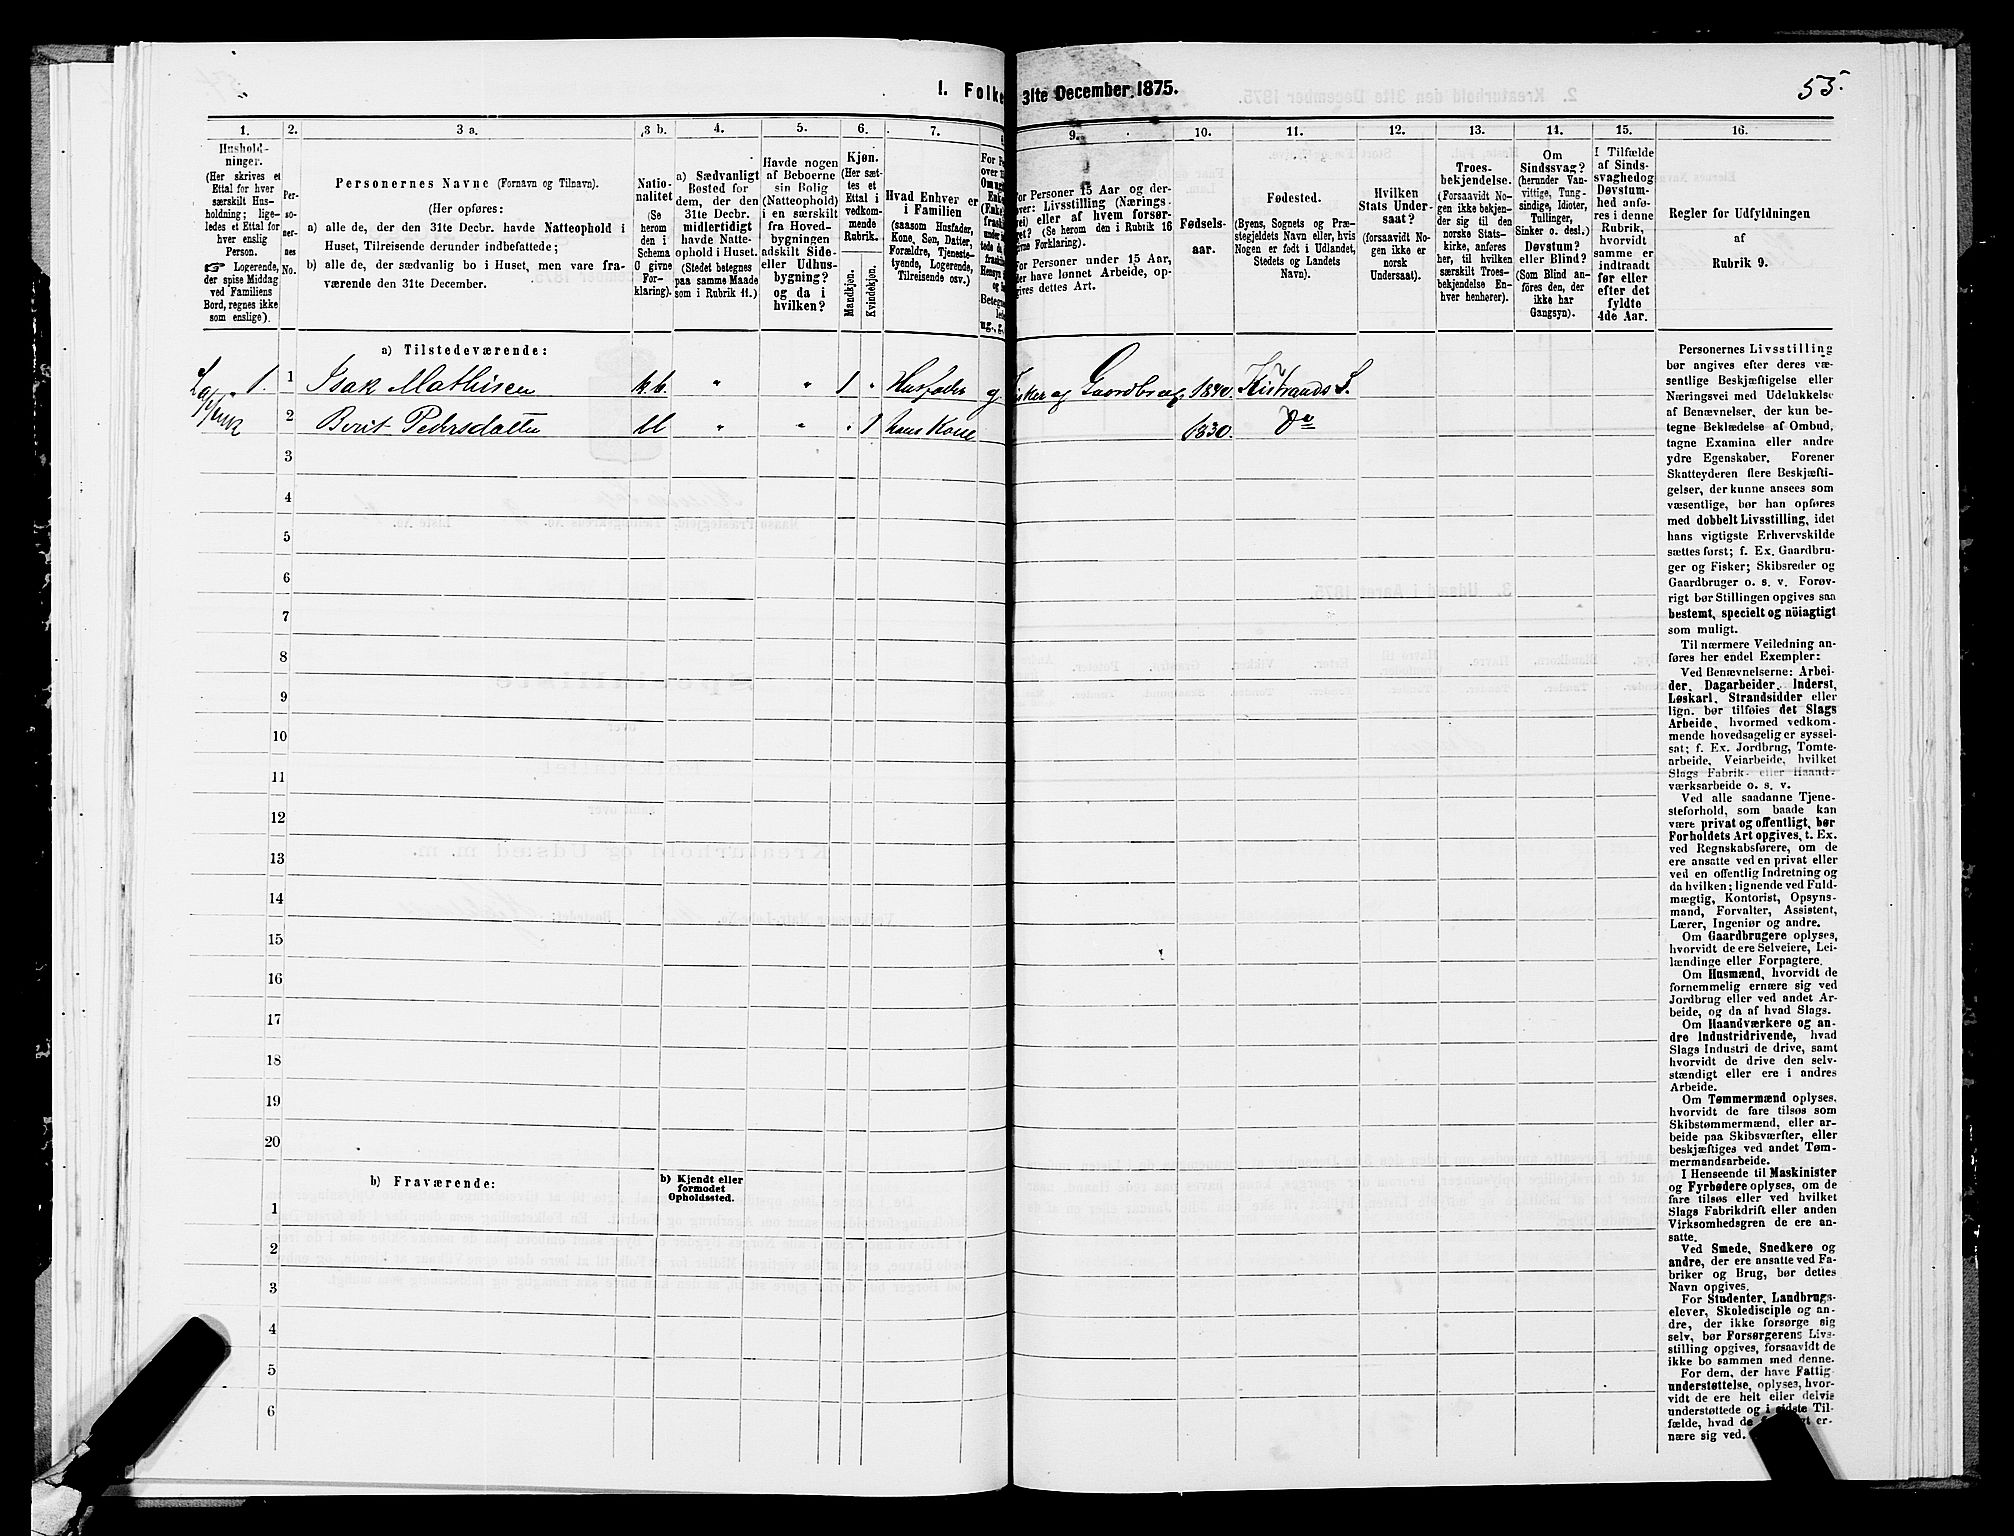 1. Folke 31te December 1875.
55.
1. 2. 3 a. 3 b. 4. 5. 6. 7. 9. 10. 11. 12. 13. 14. 15. 16.
Hushold-
ninger.
(Her skrives et
Ettal for hver
særskilt Hus-
holdning; lige-
ledes et Ettal for
hver enslig
Person.
☞ Logerende,
der spise Middag
ved Familiens
Bord, regnes ikke
som enslige).
Per-
so-
ner-
nes
No.
Personernes Navne (Fornavn og Tilnavn).
(Her opføres:
a) alle de, der den 31te Decbr. havde Natteophold i
Huset, Tilreisende derunder indbefattede;
b) alle de, der sædvanlig bo i Huset, men vare fra-
værende den 31te December.
Natio-
nalitet
(Se
herom
den i
Schema
O givne
For-
klaring).
a) Sædvanligt
Bosted for
dem, der den
31te Decbr.
midlertidigt
havde Natte-
ophold i Huset.
(Stedet betegnes
paa samme Maade
som i Rubrik 11.)
Havde nogen
af Beboerne
sin Bolig
(Natteophold)
i en særskilt
fra Hoved-
bygningen
adskilt Side-
eller Udhus-
bygning?
og da i
hvilken?
Kjøn.
(Her sæt-
tes et
Ettal i
vedkom-
mende
Rubrik.
Mandkjøn.
Kvindekjøn.
Hvad Enhver er
i Familien
(saasom Husfader,
Kone, Søn, Datter,
Forældre, Tjeneste-
tyende, Logerende,
Tilreisende osv.)
For Personer 15 Aar og der-
over: Livsstilling (Nærings-
vei) eller af hvem forsør-
get? (Se herom den i Rubrik 16
givne Forklaring).
For Personer under 15 Aar,
der have lønnet Arbeide, op-
gives dettes Art.
Fødsels-
aar.
Fødested.
(Byens, Sognets og Præ-
stegjeldets Navn eller, hvis
Nogen er født i Udlandet,
Stedets og Landets
Navn).
Hvilken
Stats Under-
saat?
(forsaavidt No-
gen ikke er
norsk
Undersaat).
Troes-
bekjendelse.
(Forsaavidt No-
gen ikke bekjen-
der sig til den
norske Stats-
kirke, anføres
her, til hvilken
særskilt Troes-
bekjendelse En-
hver henhører).
Om
Sindssvag?
(herunder Van-
vittige, Tung-
sindige, Idioter,
Tullinger,
Sinker o. desl.)
Døvstum?
eller Blind?
(Som Blind an-
föres den, der
ikke har
Gangsyn).
I Tilfælde
af Sinds-
svaghed og
Døvstum-
hed anfø-
res i denne
Rubrik,
hvorvidt
samme er
indtraadt
før eller
efter det
fyldte
4de Aar.
Regler for Udfyldningen
af
Rubrik 9.
a) Tilstedeværende:
1. 1 Isak Mathisen " " 1 " Husfader g Fisker og Gaardbrug. 1840. Kistrands S.
2 Berit Pedersdatter " " " 1 hans Kone 1830. Do
3
4
5
6
7
8
9
10
11
12
13
14
15
16
17
18
19
20
b) Fraværende:
b) Kjendt eller
formodet
Opholdssted.
1
2
3
4
5
6
Personernes Livsstilling
bør angives efter deres væ-
sentlige Beskjæftigelse eller
Næringsvei med Udelukkelse
af Benævnelser, der kun be-
tegne Beklædelse af Ombud,
tagne Examina eller andre
ydre Egenskaber. Forener
Skatteyderen flere Beskjæfti-
gelser, der kunne ansees som
væsentlige, bør han opføres
med dobbelt Livsstilling, idet
hans vigtigste Erhvervskilde
sættes først; f. Ex. Gaardbru-
ger og Fisker; Skibsreder og
Gaardbruger o. s. v. Forøv-
rigt bør Stillingen opgives saa
bestemt, specielt og nöiagtigt
som muligt.
Til nærmere Veiledning an-
føres her endel Exempler:
Ved Benævnelserne: Arbei-
der, Dagarbeider, Inderst,
Løskarl, Strandsidder eller
lign. bør tilføies det Slags
Arbeide, hvormed vedkom-
mende hovedsagelig er syssel-
sat; f. Ex. Jordbrug, Tomte-
arbeide, Veiarbeide, hvilket
Slags Fabrik- eller Haand-
værksarbeide o. s. v.
Ved alle saadanne Tjene-
steforhold, som baade kan
være privat og offentligt, bør
Forholdets Art opgives, t. Ex.
ved Regnskabsførere, om de
ere ansatte ved en privat eller
ved en offentlig Indretning og
da hvilken; lignende ved Fuld-
mægtig, Kontorist, Opsyns-
mand, Forvalter, Assistent,
Lærer, Ingeniør og andre.
Om Gaardbrugere oplyses,
hvorvidt de ere Selveiere, Lei-
lændinge eller Forpagtere.
Om Husmænd, hvorvidt de
fornemmelig ernære sig ved
Jordbrug eller ved andet Ar-
beide, og da af hvad Slags.
Om Haandværkere og an-
dre Industridrivende, hvad
Slags Industri de drive, samt
hvorvidt de drive den selv-
stændigt eller ere i andres
Arbeide.
Om Tømmermænd oplyses,
hvorvidt de fare tilsøs som
Skibstømmermænd, eller ar-
beide paa Skibsværfter, eller
beskjæftiges ved andet Tøm-
mermandsarbeide.
I Henseende til Maskinister
og Fyrbødere oplyses, om de
fare tilsøs eller ved hvilket
Slags Fabrikdrift eller anden
Virksomhedsgren de ere an-
satte.
Ved Smede, Snedkere og
andre, der ere ansatte ved Fa-
briker og Brug, bør dettes
Navn opgives.
For Studenter, Landbrugs-
elever, Skoledisciple og an-
dre, der ikke forsørge sig
selv, bør Forsørgerens Livs-
stilling opgives, forsaavidt de
ikke bo sammen med denne.
For dem, der have Fattig-
understøttelse, oplyses, hvor-
vidt de ere helt eller delvis
understøttede og i sidste Til-
fælde, hvad de er-
nære sig ved.